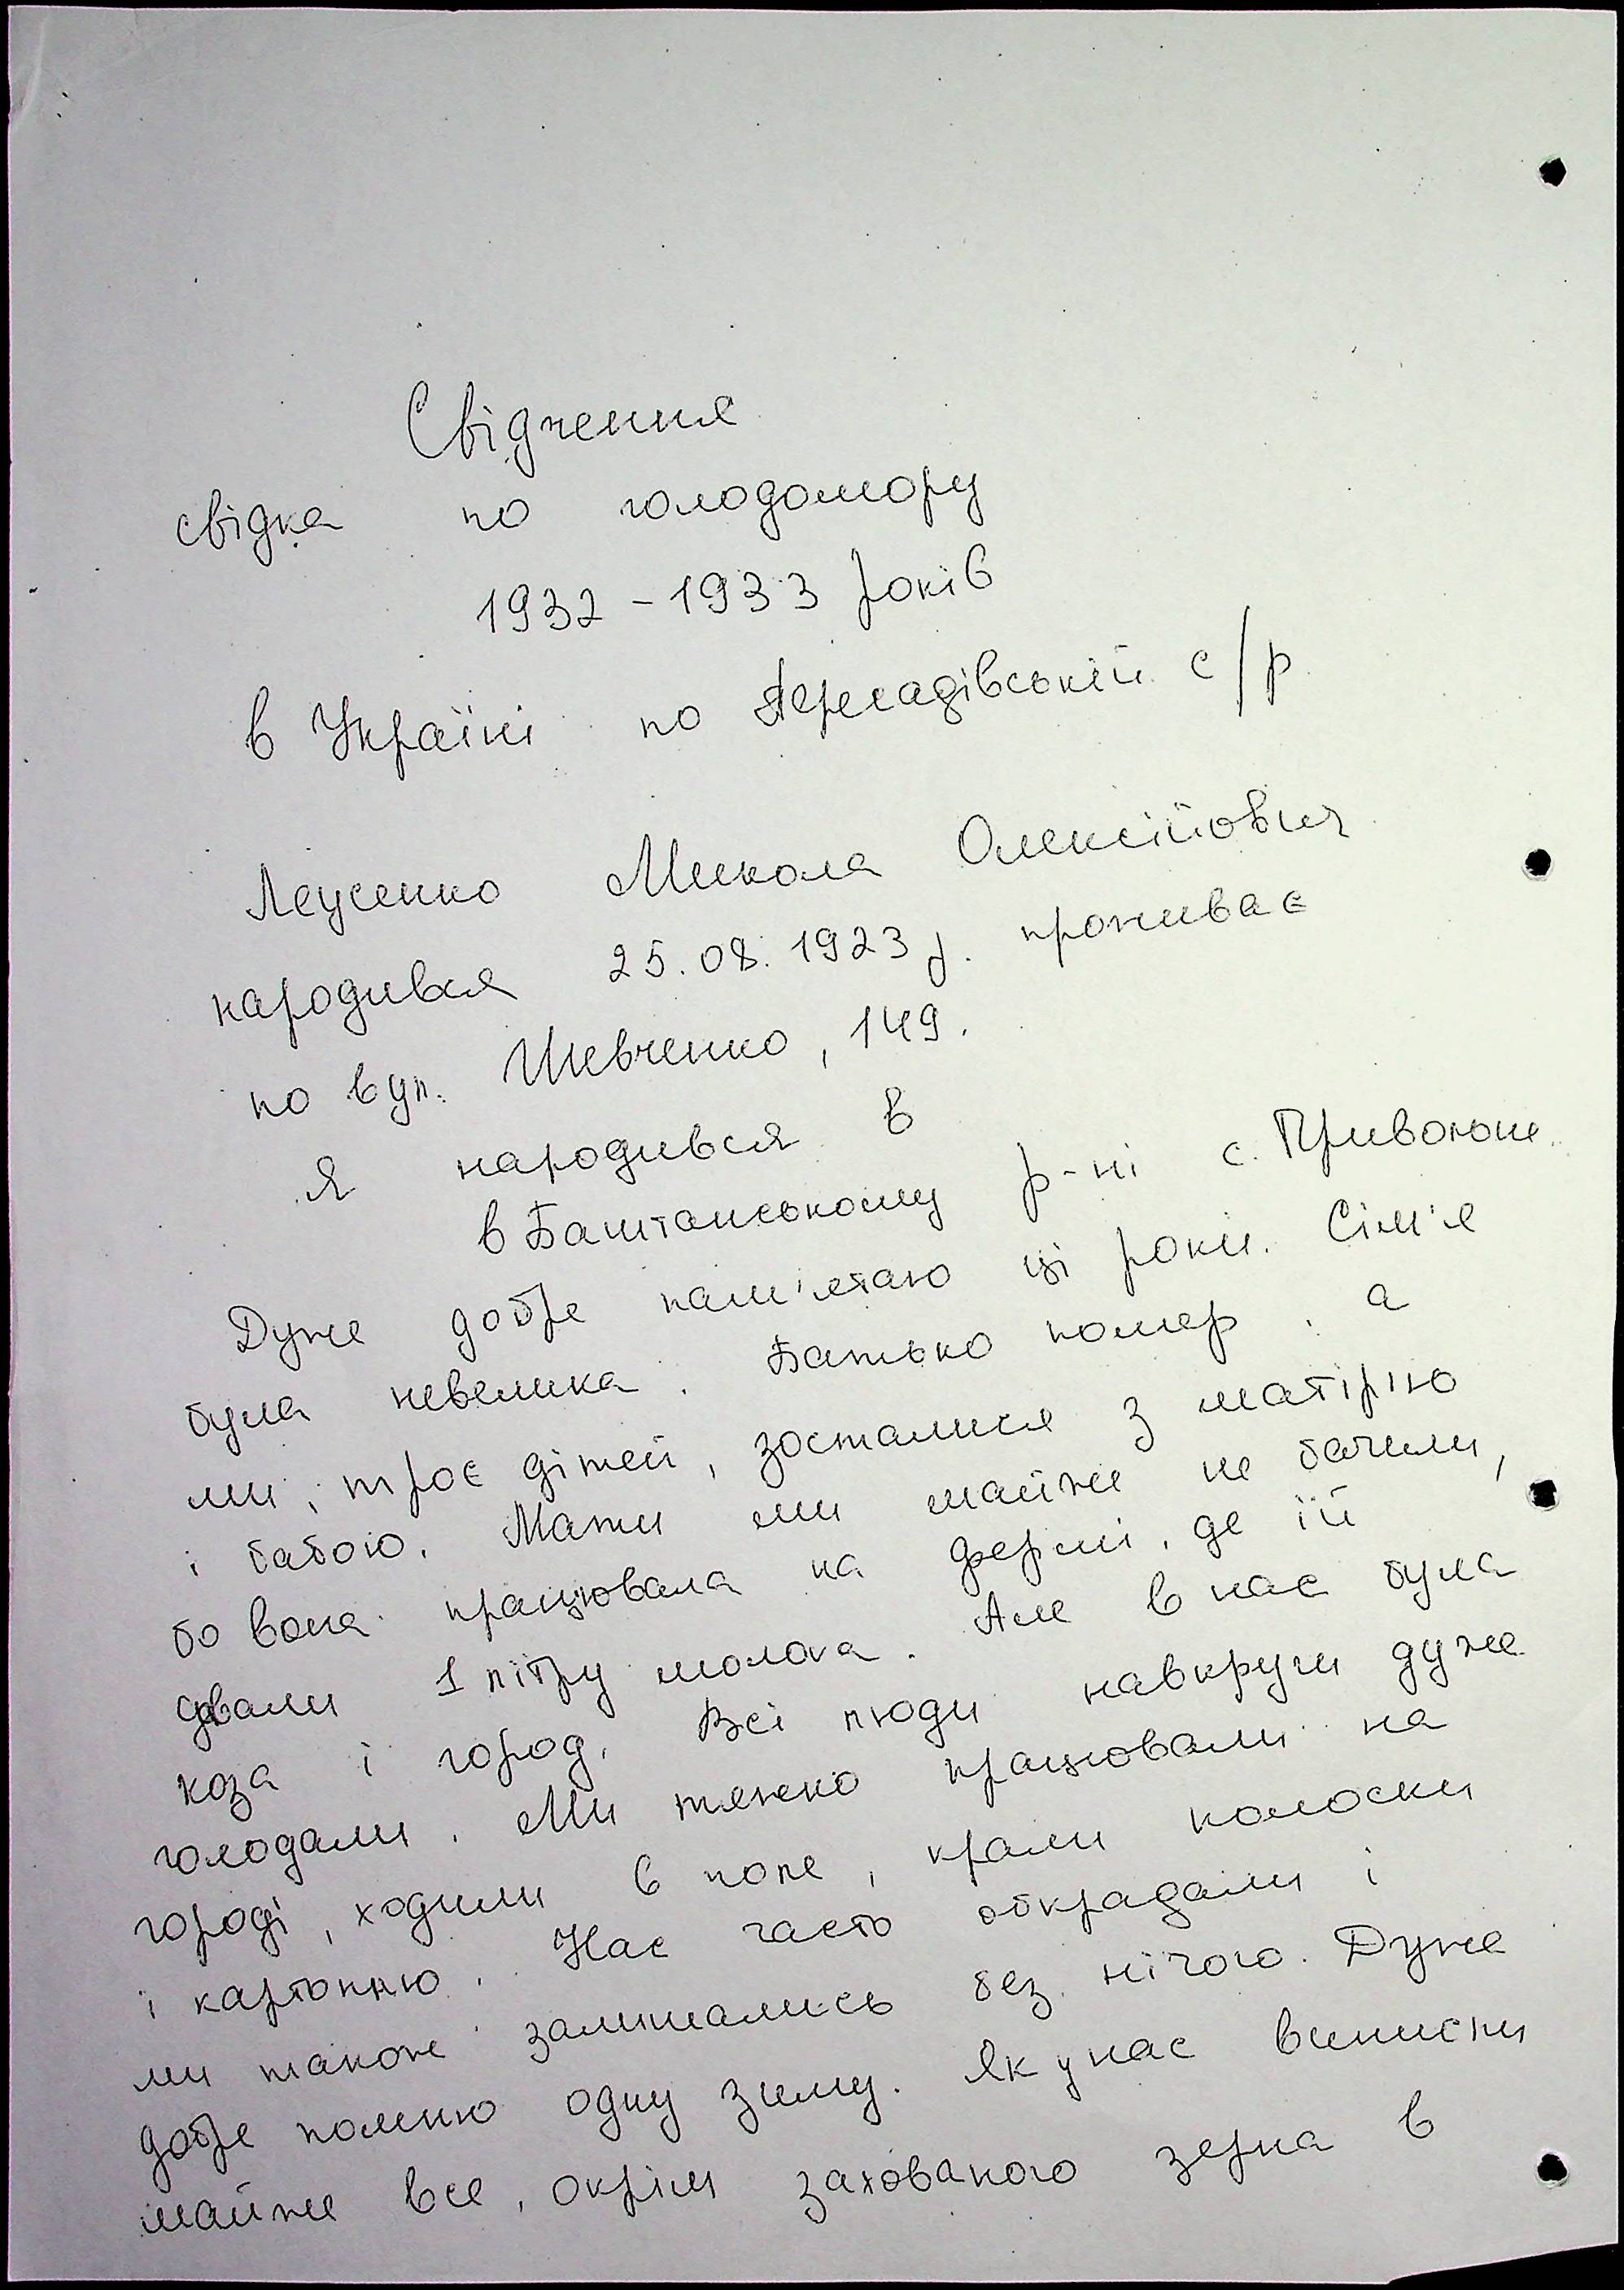 Свідчення
свідка по голодомору
1932 - 1933 років
в Україні по Пересадівській с/р
Леусенко Микола Олексійович
народився 25.08.1923 р. проживає
по вул. Шевченко, 149.
Я народився в
в Баштанському р-ні с. Привольне
Дуже добре пам'ятаю ці роки. Сім'я
була невелика. Батько помер, а
ми, троє дітей, зосталися з матірію
і бабою. Мати ми майже не бачили,
бо вона працювала на фермі, де їй
давали 1 літру молока. Але в нас була
коза і город. Всі люди навкруги дуже
голодали. Ми тяжко працювали на
городі, ходили в поле, крали колоски
і картоплю. Нас часто обкрадали і
ми також залишались без нічого. Дуже
добре помню одну зиму. Як у нас винисли
майже все, окрім захованого зерна в